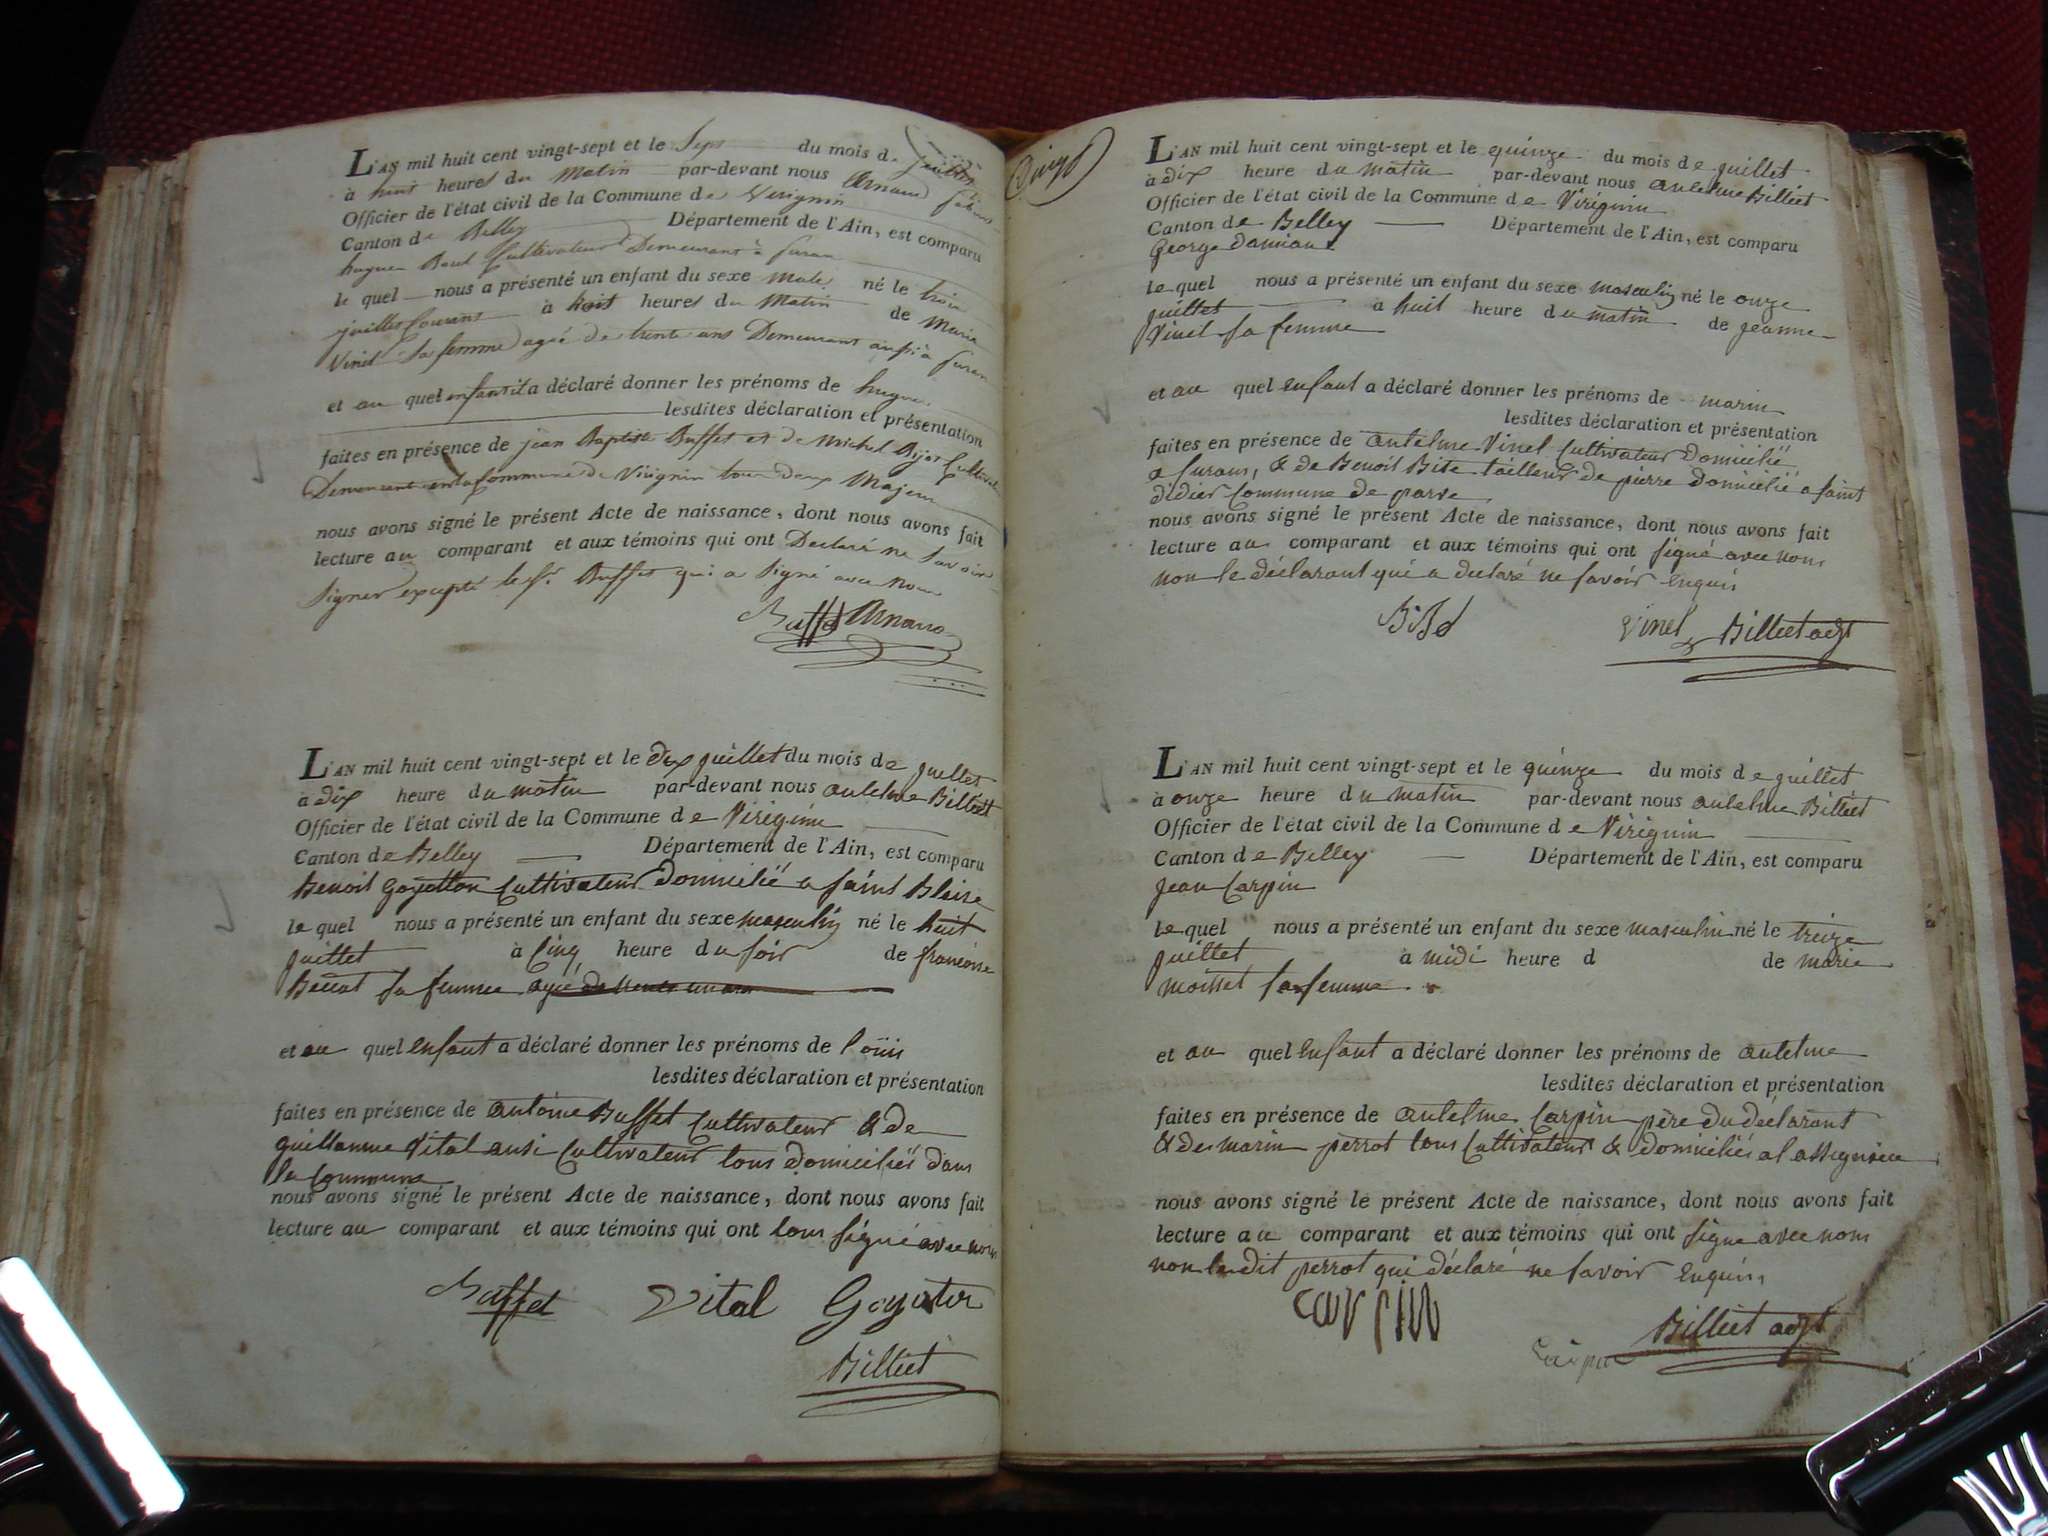 L'AN mil huit cent vingt-sept et le Sept du mois de juillet
à huit heures du Matin par-devant nous Arnaud
Officier de l'état civil de la Commune de Virignin
Canton de Belley Département de l'Ain, est comparu
hugue Cultivateur Demeurant à furan
le quel nous a présenté un enfant du sexe Male né le trois
juillet Courant à huit heures du Matin de Marie
Vinel Sa femme agée de trente ans Demeurant aussi à furan
et au quel enfant il a déclaré donner les prénoms de hugue
lesdites déclaration et présentation
faites en présence de jean Baptiste Buffet et de Michel
Demeurant en la Commune de Virignin tous deux Majeur
nous avons signé le présent Acte de naissance, dont nous avons fait
lecture au comparant et aux témoins qui ont Declaré ne Savoir
Signer excepté le Sr. Buffet qui a Signé avec Nous
Buffet Arnaud
L'AN mil huit cent vingt-sept et le dix juillet du mois de juillet
à dix heure du matin par-devant nous antelme Billiet
Officier de l'état civil de la Commune de Virignin
Canton de Belley Département de l'Ain, est comparu
Benoit Cultivateur Domicilié a Saint Blaise
le quel nous a présenté un enfant du sexe masculin né le huit
juillet à Cinq heure du soir de francoise
sa femme agée de trente un ans
et au quel enfant a déclaré donner les prénoms de loüis
lesdites déclaration et présentation
faites en présence de antoine Buffet Cultivateur & de
guillaume Vital ausi Cultivateur tous Domiciliés dans
la Commune
nous avons signé le présent Acte de naissance, dont nous avons fait
lecture au comparant et aux témoins qui ont tous signé avec nous
Buffet Vital
Billiet
vingt
L'AN mil huit cent vingt-sept et le quinze du mois de juillet
à dix heure du matin par-devant nous antelme Billiet
Officier de l'état civil de la Commune de Virignin
Canton de Belley Département de l'Ain, est comparu
George Damians
le quel nous a présenté un enfant du sexe masculin né le onze
juillet à huit heure du matin de jeanne
Vinel sa femme
et au quel enfant a déclaré donner les prénoms de marin
lesdites déclaration et présentation
faites en présence de antelme Vinel Cultivateur Domicilié
a furans, & de Benoit tailleur de pierre Domicilié a Saint
didier Commune de parve
nous avons signé le présent Acte de naissance, dont nous avons fait
lecture au comparant et aux témoins qui ont signé avec nous
non le déclarant qui a declaré ne savoir enquis
Vinel Billiet adjt
L'AN mil huit cent vingt-sept et le quinze du mois de juillet
à onze heure du matin par-devant nous antelme Billiet
Officier de l'état civil de la Commune de Virignin
Canton de Belley Département de l'Ain, est comparu
Jean Carpin
le quel nous a présenté un enfant du sexe masculin né le treize
juillet à midi heure d de marie
sa femme
et au quel enfant a déclaré donner les prénoms de antelme
lesdites déclaration et présentation
faites en présence de antelme Carpin père du déclarant
& de marin perrot tous Cultivateur & Domiciliés a
nous avons signé le présent Acte de naissance, dont nous avons fait
lecture au comparant et aux témoins qui ont signé avec nous
non le dit perrot qui déclaré ne savoir enquis
carpin
Billiet adjt
Carpin